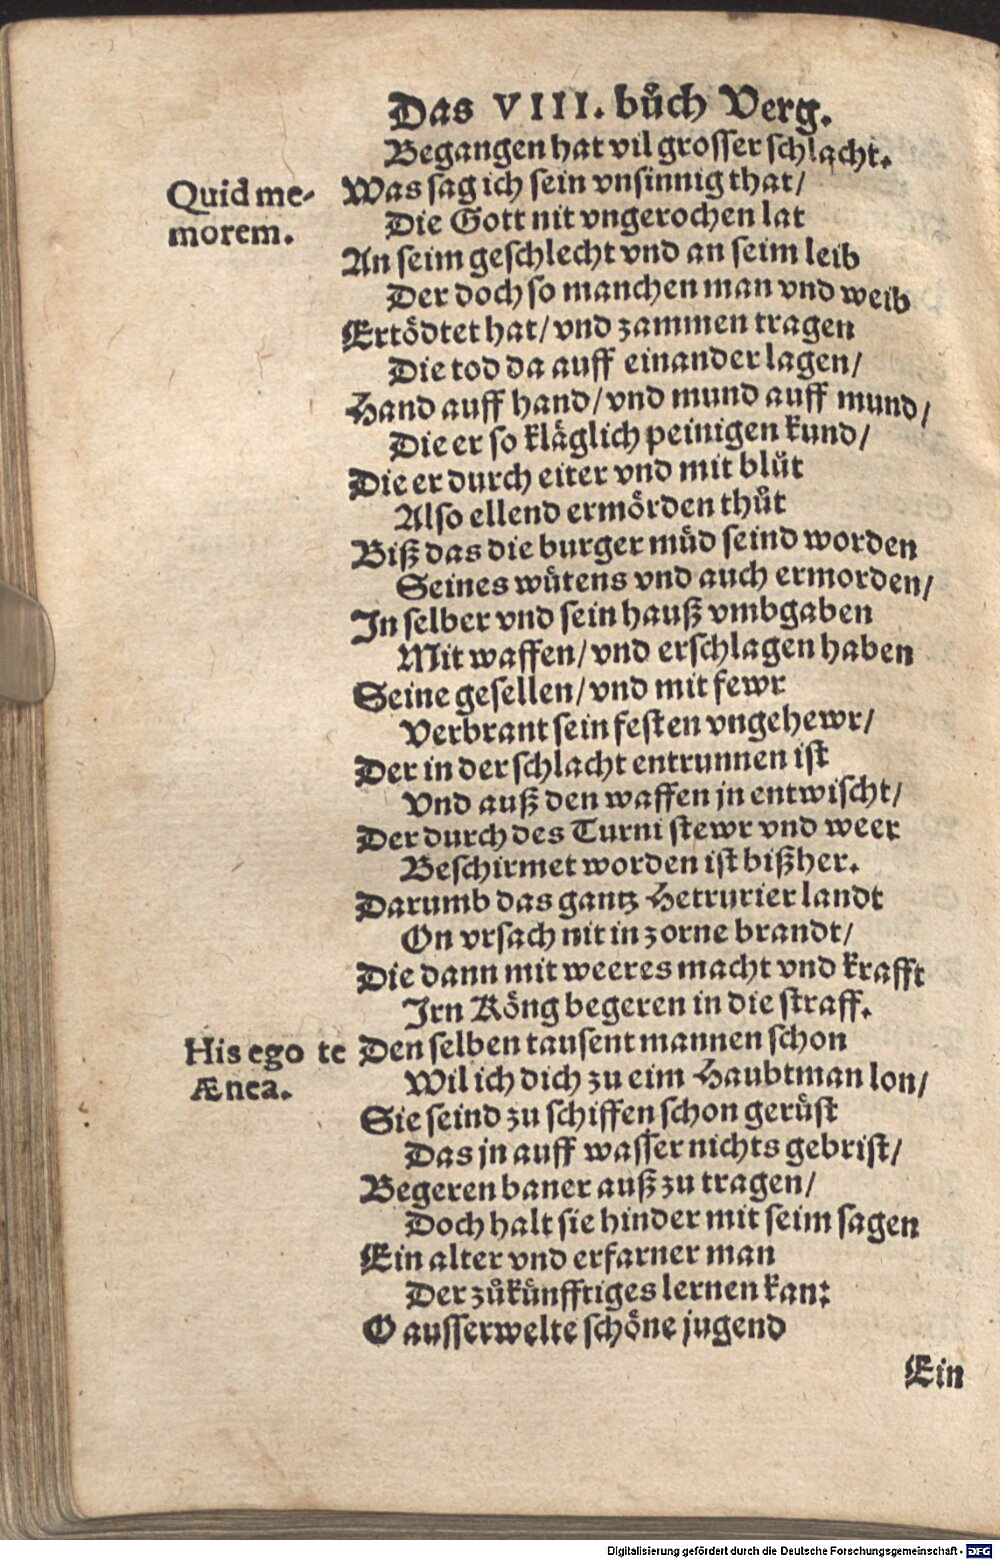 Das VIII. bůch Verg.
Begangen hat vil grosser schlacht.
Quid me-
morem.
Was sag ich sein vnsinnig that/
Die Gott nit vngerochen lat
An seim geschlecht vnd an seim leib
Der doch so manchen man vnd weib
Ertödtet hat/ vnd zammen tragen
Die tod da auff einander lagen/
Hand auff hand/ vnd mund auff mund/
Die er so kläglich peinigen kund/
Die er durch eiter vnd mit blůt
Also ellend ermörden thůt
Biß das die burger müd seind worden
Seines wütens vnd auch ermorden/
In selber vnd sein hauß vmbgaben
Mit waffen/ vnd erschlagen haben
Seine gesellen/ vnd mit fewr
Verbrant sein festen vngehewr/
Der in der schlacht entrunnen ist
Vnd auß den waffen jn entwischt/
Der durch des Turni stewr vnd weer
Beschirmet worden ist bißher.
Darumb das gantz Hetrurier landt
On vrsach nit in zorne brandt/
Die dann mit weeres macht vnd krafft
Irn Köng begeren in die straff.
His ego te
Ænea.
Den selben tausent mannen schon
Wil ich dich zu eim Haubtman lon/
Sie seind zu schiffen schon gerüst
Das jn auff wasser nichts gebrist/
Begeren baner auß zu tragen/
Doch halt sie hinder mit seim sagen
Ein alter vnd erfarner man
Der zůkünfftiges lernen kan:
O ausserwelte schöne jugend
Ein
Digitalisierung gefördert durch die Deutsche Forschungsgemeinschaft - DFG